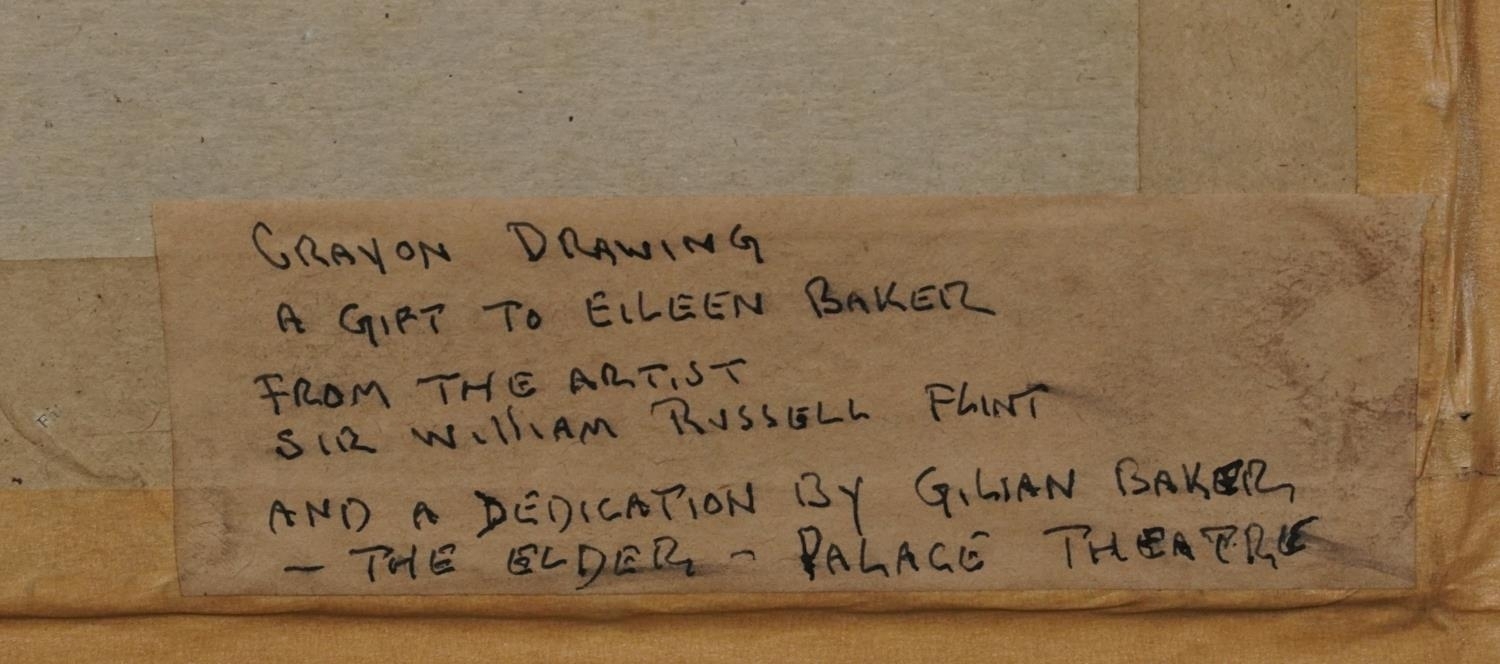 CRAYON DRAWING
A GIFT TO EILEEN BAKER
FROM THE ARTIST
SIR WILLIAM RUSSELL FLINT
AND A DEDICATION BY GILIAN BAKER
– THE ELDER – PALACE THEATRE